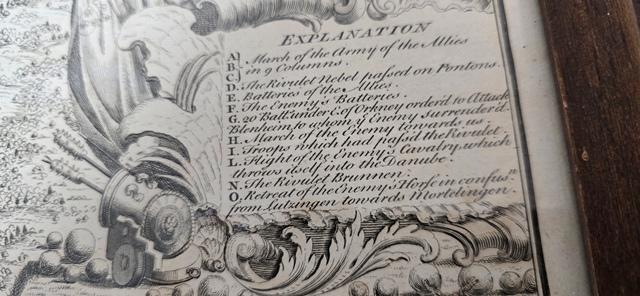 EXPLANATION
A. March of the Army of the Allies
B. in 9 Columns.
C.
D. The Rivulet Nebel passed on Pontons.
E. Batteries of the Allies.
F. The Enemy's Batteries.
G. 20 Batt. under E. of Orkney order'd to Attack
Blenheim, to whom ye Enemy Surrender'd.
H. March of the Enemy towards us.
I. Troops which had pass'd the Rivulet.
L. Flight of the Enemy's Cavalry, which
throws itself into the Danube.
N. The Rivulet Brunnen.
O. Retreat of the Enemy's Horse in confusn
from Lutzingen towards Mortelingen.